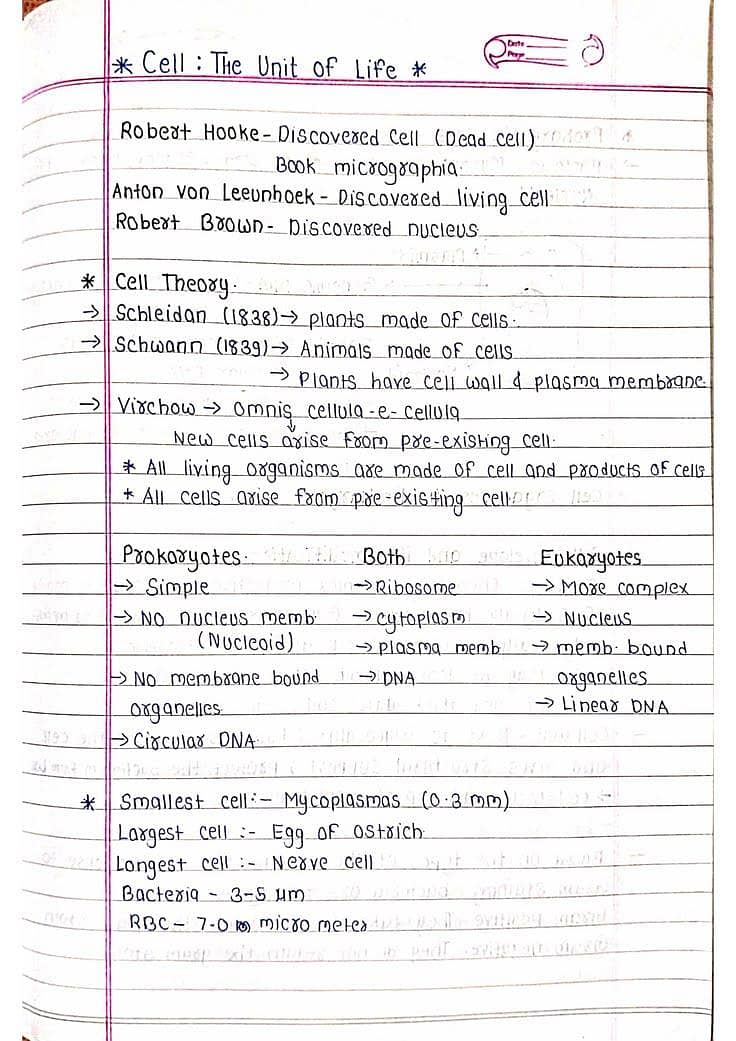 Date
Page
* Cell : The Unit of Life *
Robert Hooke - Discovered Cell (Dead cell)
Book micrographia.
Anton von Leeunhoek - Discovered living cell
Robert Brown - Discovered nucleus
* Cell Theory.
→ Schleidan (1838) → plants made of cells.
→ Schwann (1839) → Animals made of cells
→ Plants have cell wall & plasma membrane.
→ Virchow → omnis cellula-e-cellula
↓
New cells arise from pre-existing cell.
* All living organisms are made of cell and products of cells
* All cells arise from pre-existing cell.
Prokaryotes. Both Eukaryotes
→ Simple → Ribosome → More complex
→ No nucleus memb. → cytoplasm → Nucleus
(Nucleoid) → plasma memb. → memb. bound
→ No membrane bound → DNA organelles
organelles. → Linear DNA
→ Circular DNA.
* Smallest cell :- Mycoplasmas (0.3 mm)
Largest cell :- Egg of ostrich.
Longest cell :- Nerve cell
Bacteria - 3-5 µm
RBC - 7.0 micro meter